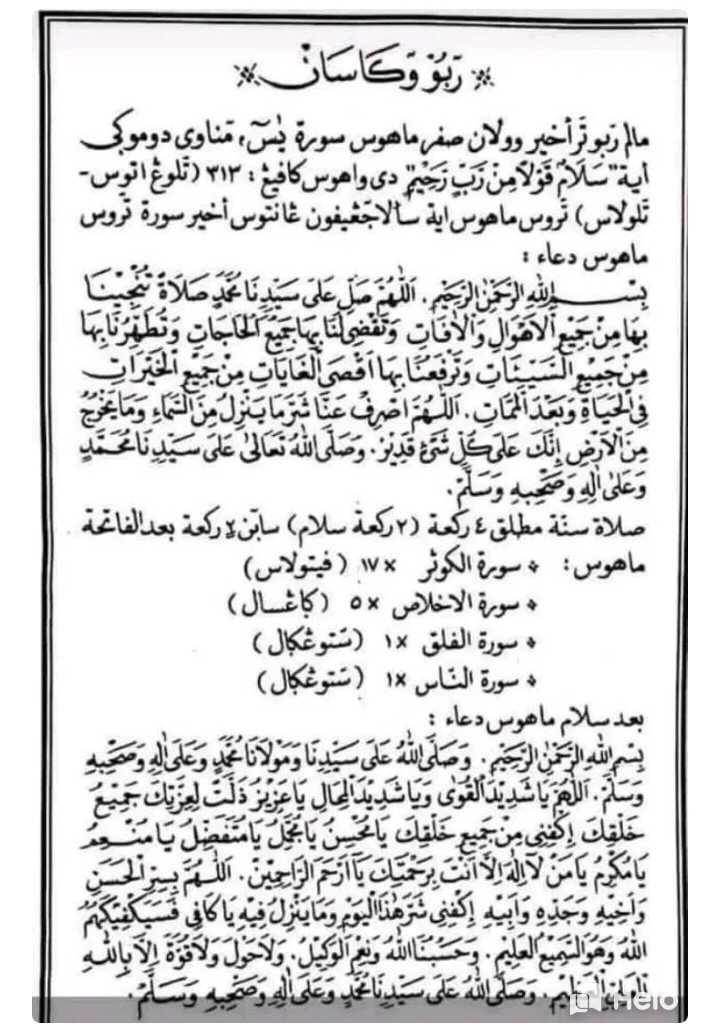 ربو وكاسان
مالم ربو تراخير وولان صفر ماهوس سورة يٰسٓ، مناوى دوموكي
أية "سَلَامٌ قَوْلًا مِنْ رَبٍّ رَحِيْمٍ" دى واهوس كافيڠ : ٣١٣ (تلوڠ اتوس-
تلولاس) تروس ماهوس اية سألاجڠيفون ڠانتوس أخير سورة تروس
ماهوس دعاء :
بِسْمِ اللهِ الرَّحْمٰنِ الرَّحِيْمِ. اَللّٰهُمَّ صَلِّ عَلَى سَيِّدِنَا مُحَمَّدٍ صَلَاةً تُنْجِيْنَا
بِهَا مِنْ جَمِيْعِ الْاَهْوَالِ وَالْاٰفَاتِ وَتَقْضِيْ لَنَا بِهَا جَمِيْعَ الْحَاجَاتِ وَتُطَهِّرُنَا بِهَا
مِنْ جَمِيْعِ السَّيِّئَاتِ وَتَرْفَعُنَا بِهَا اَقْصَى الْغَايَاتِ مِنْ جَمِيْعِ الْخَيْرَاتِ
فِي الْحَيَاةِ وَبَعْدَ الْمَمَاتِ. اَللّٰهُمَّ اصْرِفْ عَنَّا شَرَّ مَا يَنْزِلُ مِنَ السَّمَاءِ وَمَا يَخْرُجُ
مِنَ الْاَرْضِ إِنَّكَ عَلَى كُلِّ شَيْءٍ قَدِيْرٌ. وَصَلَّى اللهُ تَعَالَى عَلَى سَيِّدِنَا مُحَمَّدٍ
وَعَلَى اٰلِهِ وَصَحْبِهِ وَسَلَّمَ.
صلاة سنة مطلق ٤ ركعة (٢ ركعة سلام) سابن٢ ركعة بعد الفاتحة
ماهوس : * سورة الكوثر ×١٧ (فيتولاس)
* سورة الاخلاص ×٥ (ڬاڠسال)
* سورة الفلق ×١ (ستوڠڬال)
* سورة الناس ×١ (ستوڠڬال)
بعد سلام ماهوس دعاء :
بِسْمِ اللهِ الرَّحْمٰنِ الرَّحِيْمِ. وَصَلَّى اللهُ عَلَى سَيِّدِنَا وَمَوْلَانَا مُحَمَّدٍ وَعَلَى اٰلِهِ وَصَحْبِهِ
وَسَلَّمَ. اَللّٰهُمَّ يَا شَدِيْدَ الْقُوٰى وَيَا شَدِيْدَ الْمِحَالِ يَا عَزِيْزُ ذَلَّتْ لِعِزَّتِكَ جَمِيْعُ
خَلْقِكَ اِكْفِنِيْ مِنْ جَمِيْعِ خَلْقِكَ يَا مُحْسِنُ يَا مُجَمِّلُ يَا مُتَفَضِّلُ يَا مُنْعِمُ
يَا مُكْرِمُ يَا مَنْ لَا اِلٰهَ اِلَّا اَنْتَ بِرَحْمَتِكَ يَا اَرْحَمَ الرَّاحِمِيْنَ. اَللّٰهُمَّ بِسِرِّ الْحَسَنِ
وَاَخِيْهِ وَجَدِّهِ وَاَبِيْهِ اِكْفِنِيْ شَرَّ هٰذَا الْيَوْمِ وَمَا يَنْزِلُ فِيْهِ يَا كَافِيْ فَسَيَكْفِيْكَهُمُ
اللهُ وَهُوَ السَّمِيْعُ الْعَلِيْمُ. وَحَسْبُنَا اللهُ وَنِعْمَ الْوَكِيْلُ. وَلَا حَوْلَ وَلَا قُوَّةَ اِلَّا بِاللهِ
الْعَلِيِّ الْعَظِيْمِ. وَصَلَّى اللهُ عَلَى سَيِّدِنَا مُحَمَّدٍ وَعَلَى اٰلِهِ وَصَحْبِهِ وَسَلَّمَ.
Helo